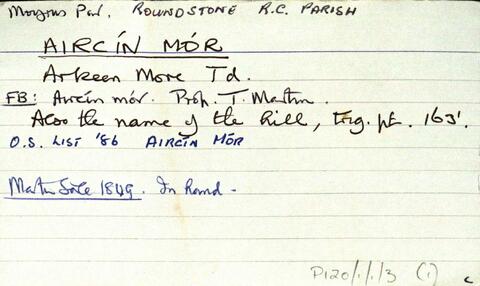 Moyrus Par. ROUNDSTONE R.C. PARISH
AIRCÍN MÓR
Arkeen More Td.
FB: Aircín mór. Prop. T. Martin.
Also the name of the hill, trig. pt. 163'.
O.S. LIST '86 AIRCÍN MÓR
Martin Sale 1849. In hand -
P120/1/1/3 (1)
c